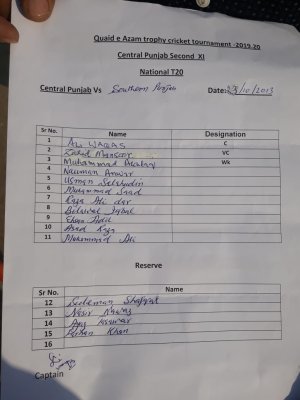 Quaid e Azam trophy cricket tournament -2019-20
Central Punjab Second XI
National T20
Central Punjab Vs Southern Punjab Date:
Sr No. Name Designation
1 Ali Waqas C
2 Zahid Mansoor VC
3 Muhammad Wk
4 Nauman Anwar
5 Usman Salahudin
6 Muhammad Saad
7 Raza Ali Dar
8 Bilawal Iqbal
9 Ehsan Adil
10 Asad Raza
11 Mohammad Ali
Reserve
Sr No. Name
12 Suleman Shafqat
13 Nasir Nawaz
14
15 Khan
16
Captain